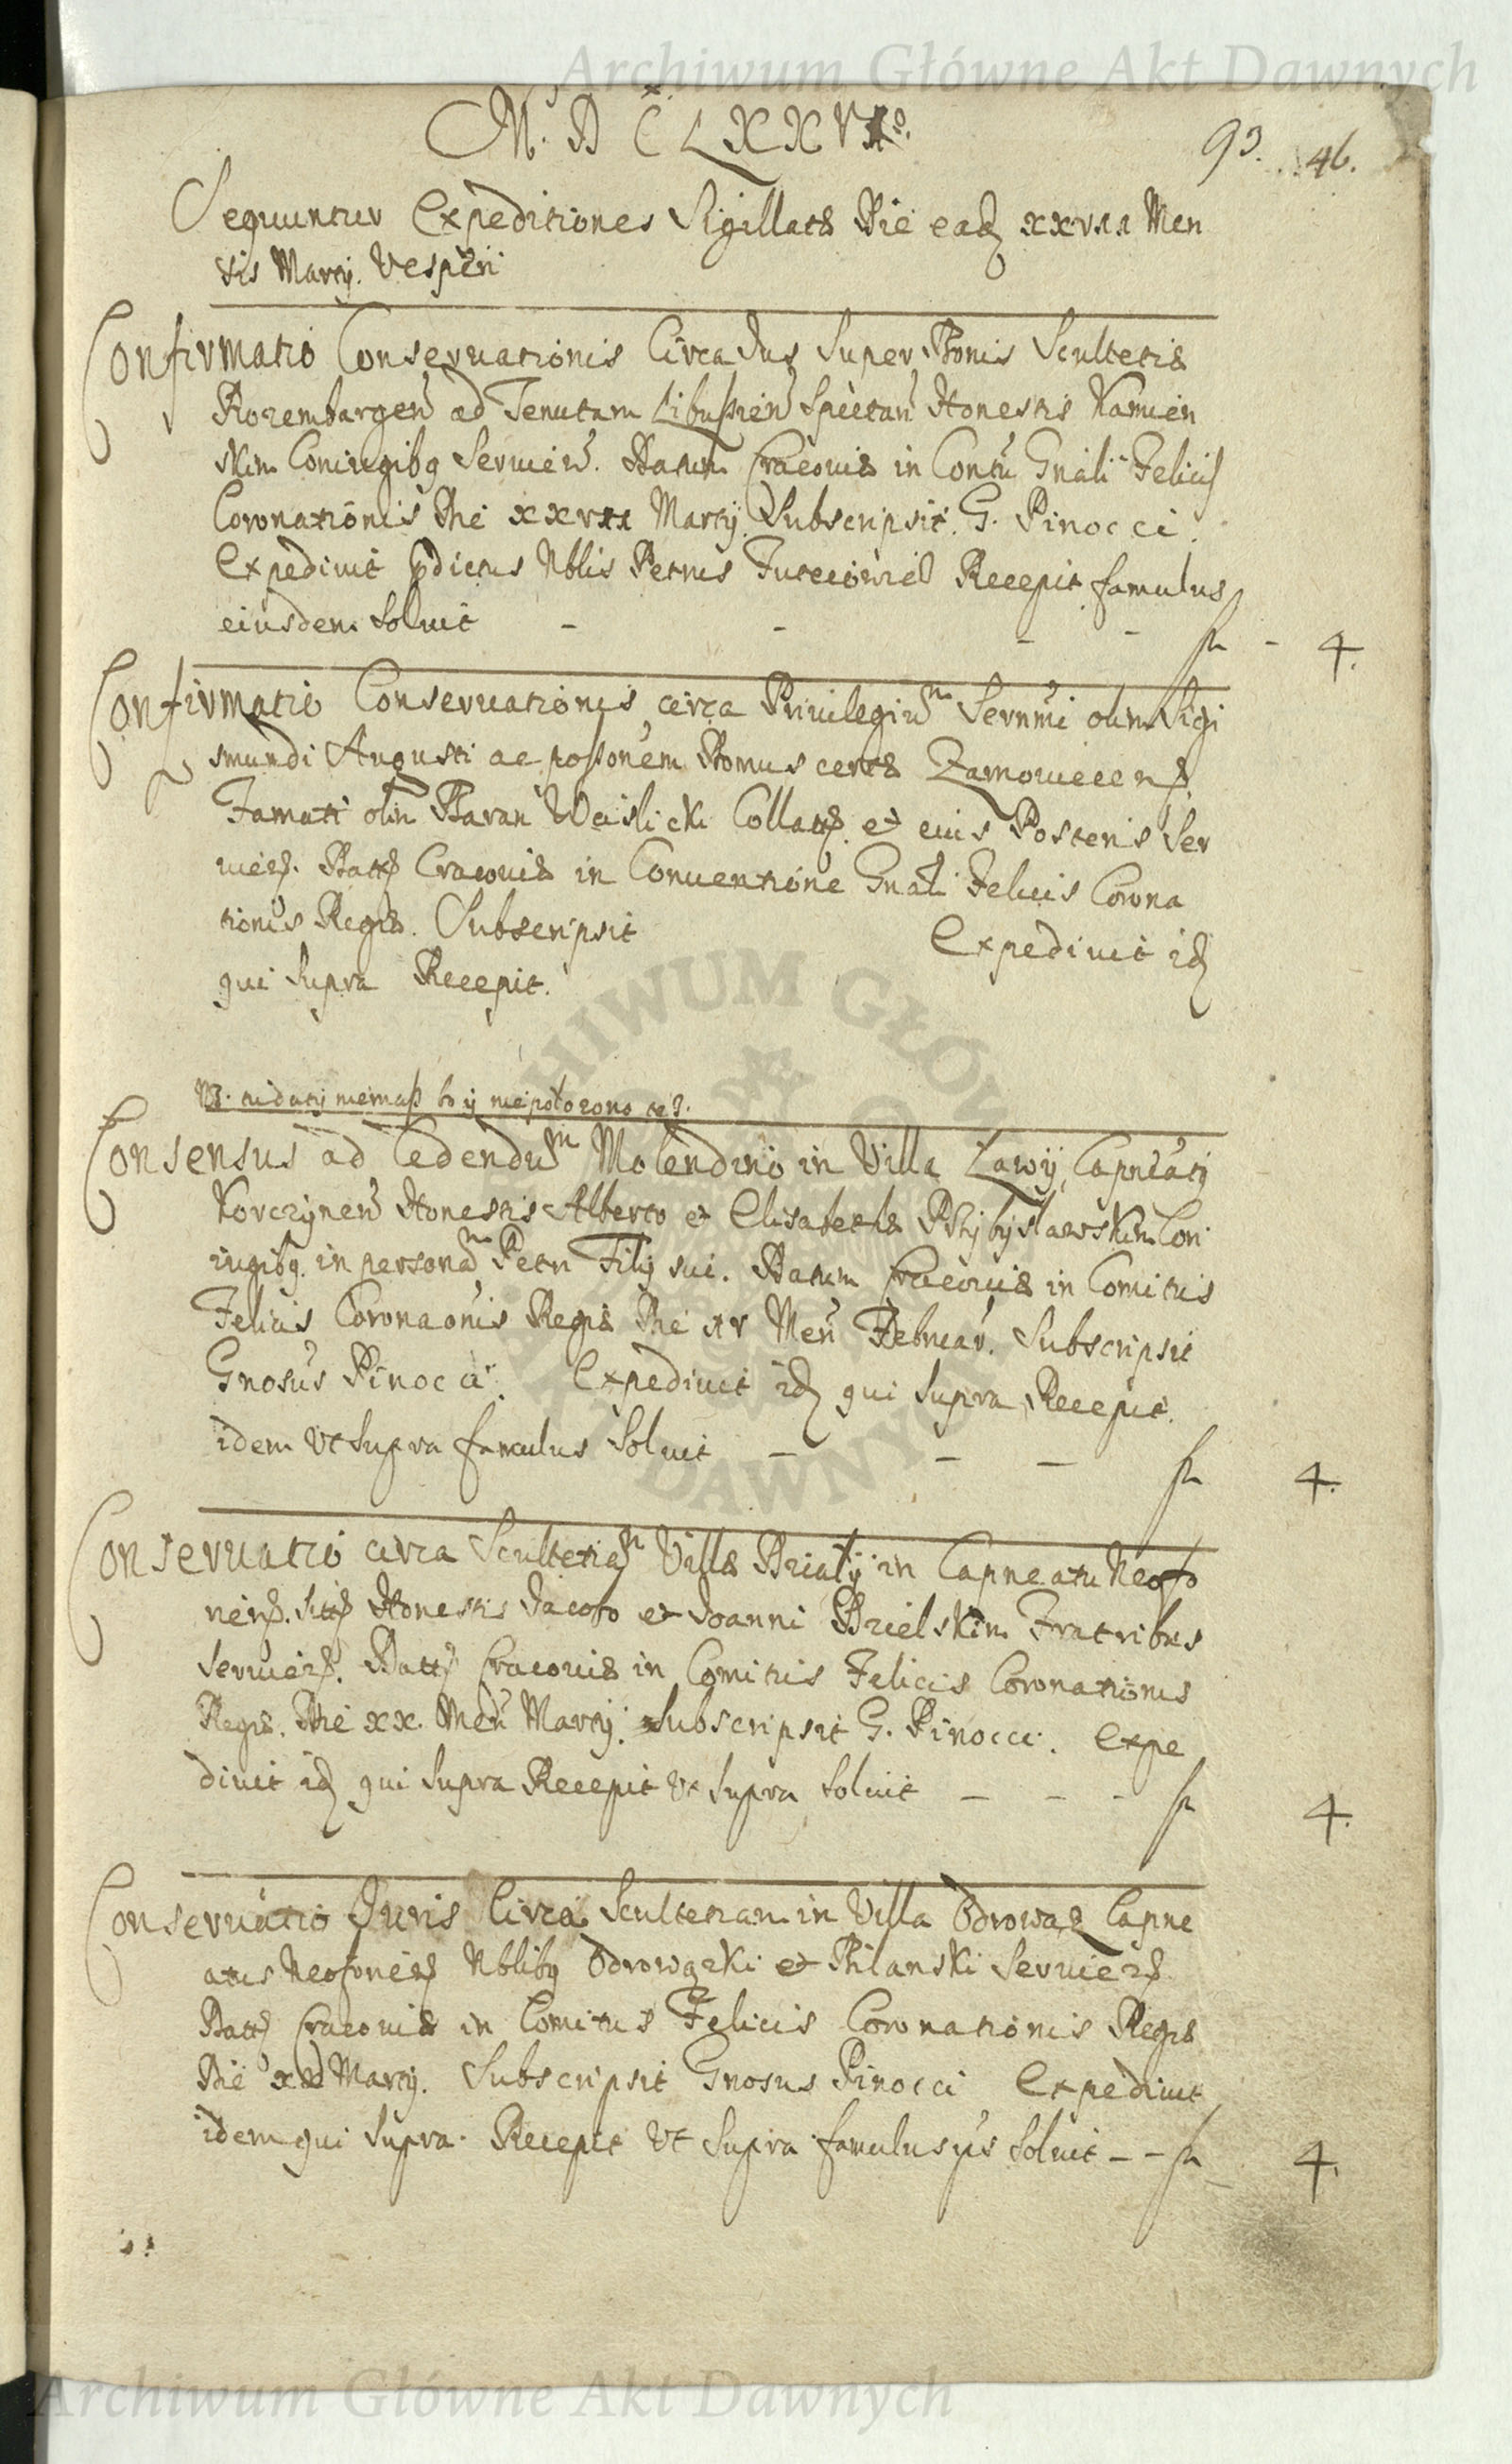 Archiwum Główne Akt Dawnych
M. D C L X X V I o.
93. 46.
Sequuntur Expeditiones Sigillatae Die eadem xxvıı Men
sis Martij. Vesperi
Confirmatio Conseruationis Circa Jus Super Sculteti
ad Tenutam Spectan Honestis Kamien
skim Coniugibq Seruien. Datum Cracouiae in Contu Gnali Felicis
Coronationis Die xxvıı Martij. Subscripsit. G. Pinocci.
Expediuit pdictus Nblis Petrus Recepit famulus
eiusdem Soluit - - - - fl - 4.
Confirmatio Conseruationis circa Priuilegium Sernmi olim Sigi
smundi Augusti ac possonem Domus certae
Famati olim Wislicki Collat. et eius Posteris Ser
uien. Datt Cracouiae in Conuentione Gnali Felicis Corona
tionis Regiae. Subscripsit Expediuit idem
qui Supra Recepit.
NB.
Consensus ad Cedendum Molendino in Villa Lawy, Capneatus
Korczynen Honestis Alberto et Elisabethae Przybyslawskim Con
iugibq. in personam Petri Filij sui. Datum Cracouiae in Comitiis
Felicis Coronaonis Regiae Die Men Februar. Subscripsit
Gnosus Pinocci. Expediuit idem qui Supra Recepit.
idem Vt Supra famulus Soluit - - - fl 4.
Conseruatio circa Scultetiam Villae in Capneatu Neofo
ren. Honestis Jacobo et Joanni Bzielskim Fratribus
Seruien. Datt Cracouiae in Comitiis Felicis Coronationis
Regiae. Die xx. Men Martij. Subscripsit G. Pinocci. Expe
diuit idem qui Supra Recepit Vt Supra Soluit - - - fl 4.
Conseruatio Juris Circa Scultetiam in Villa Odrowąz Capne
atus Neoforien Nblibq Odrowązki et Pilanski Seruien
Datt Cracouiae in Comitiis Felicis Coronationis Regiae
Die xx Martij. Subscripsit Gnosus Pinocci Expediuit
idem qui Supra. Recepit Vt Supra famulus Soluit - - fl 4.
Archiwum Główne Akt Dawnych